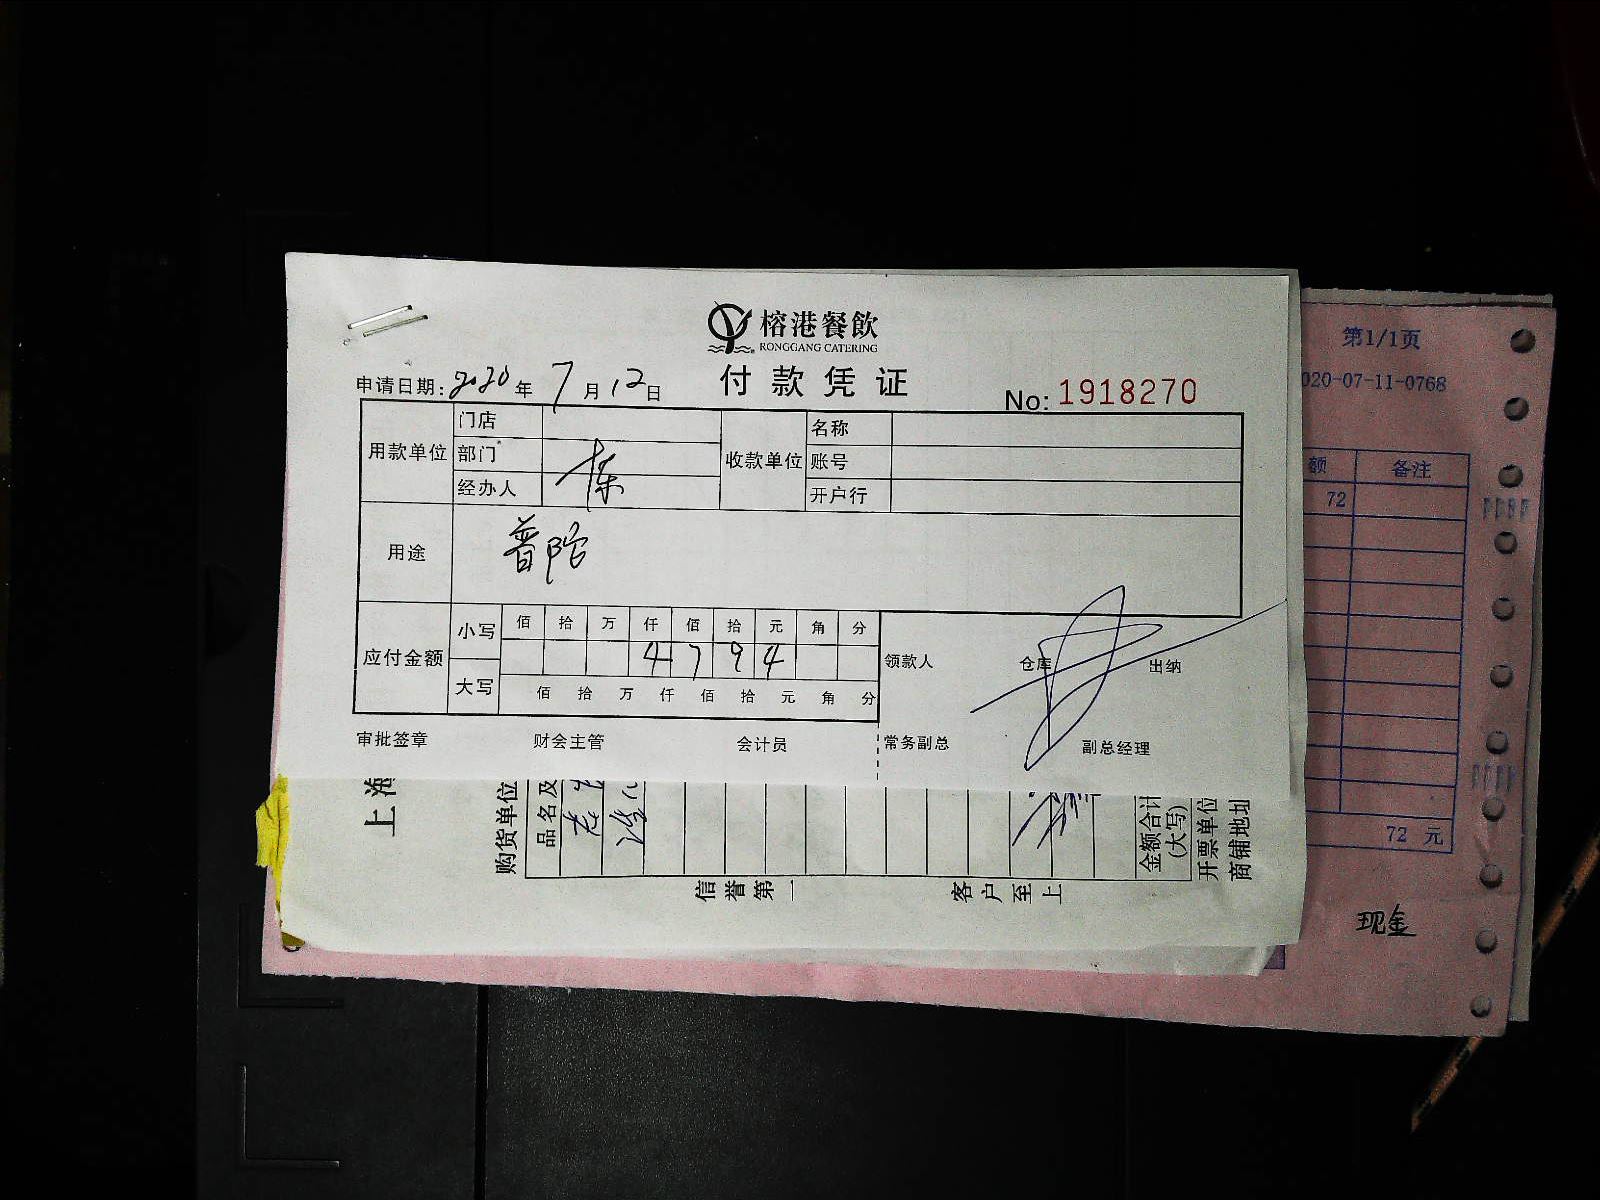 榕港餐飲
RONGGANG CATERING
付款凭证
申请日期: 2020 年 7 月 12 日
No: 1918270
用款单位 门店 收款单位 名称
部门 账号
经办人 栋 开户行
用途 普陀
应付金额 小写 佰 拾 万 仟 佰 拾 元 角 分
4 7 9 4
大写 佰 拾 万 仟 佰 拾 元 角 分
领款人 仓库 出纳
审批签章 财会主管 会计员 常务副总 副总经理
上海
购货单位
品名及
金额合计
(大写)
开票单位
商铺地址
信誉第一 客户至上
第1/1页
020-07-11-0768
额 备注
72
72 元
现金